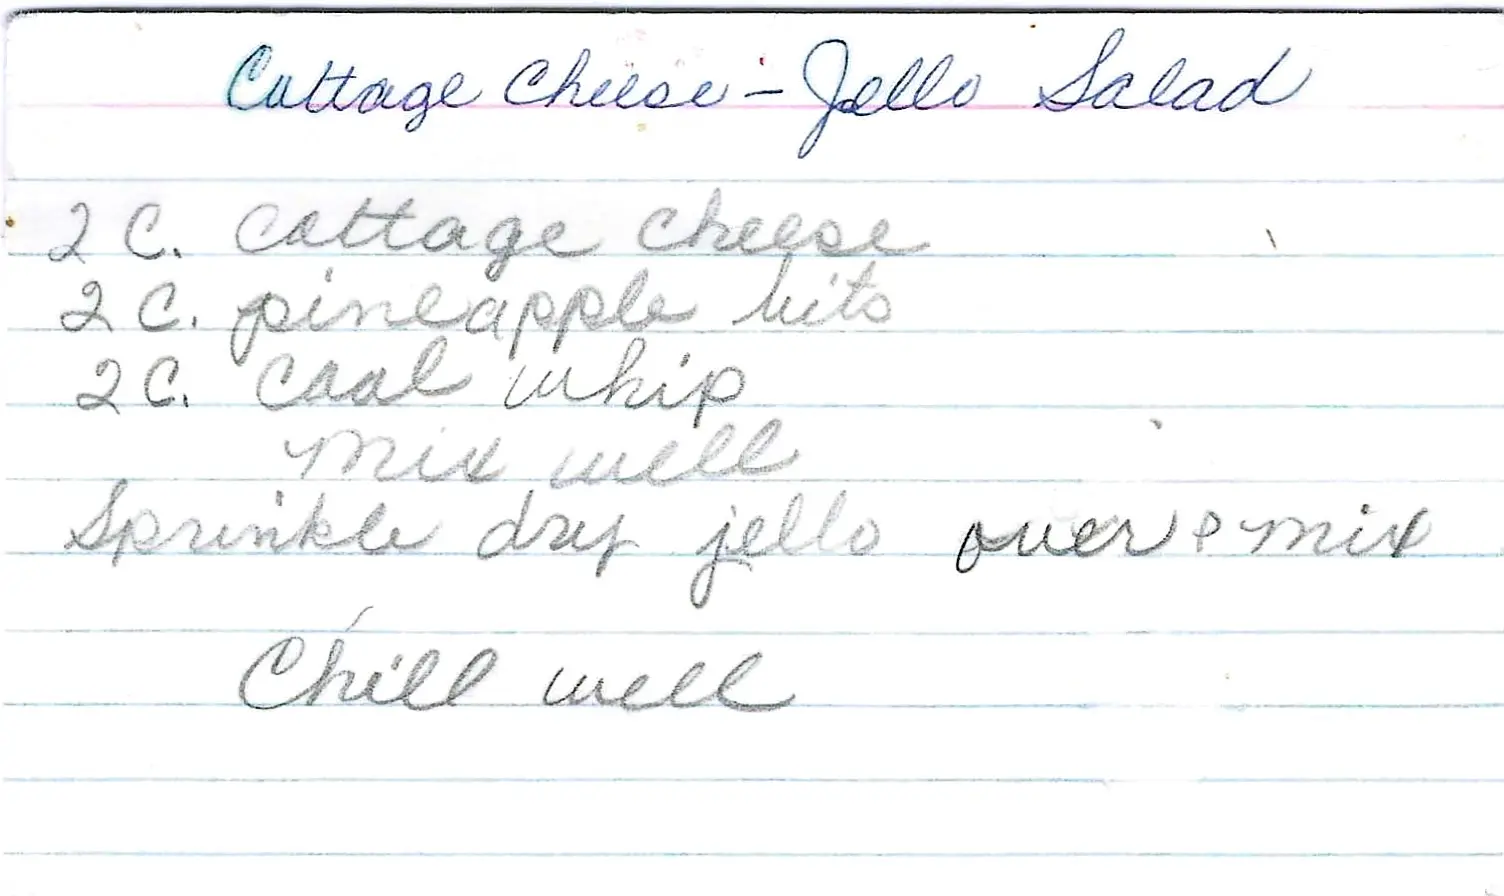 Cottage Cheese - Jello Salad
2 C. cottage cheese
2 C. pineapple bits
2 C. cool whip
mix well
Sprinkle dry jello over & mix
Chill well